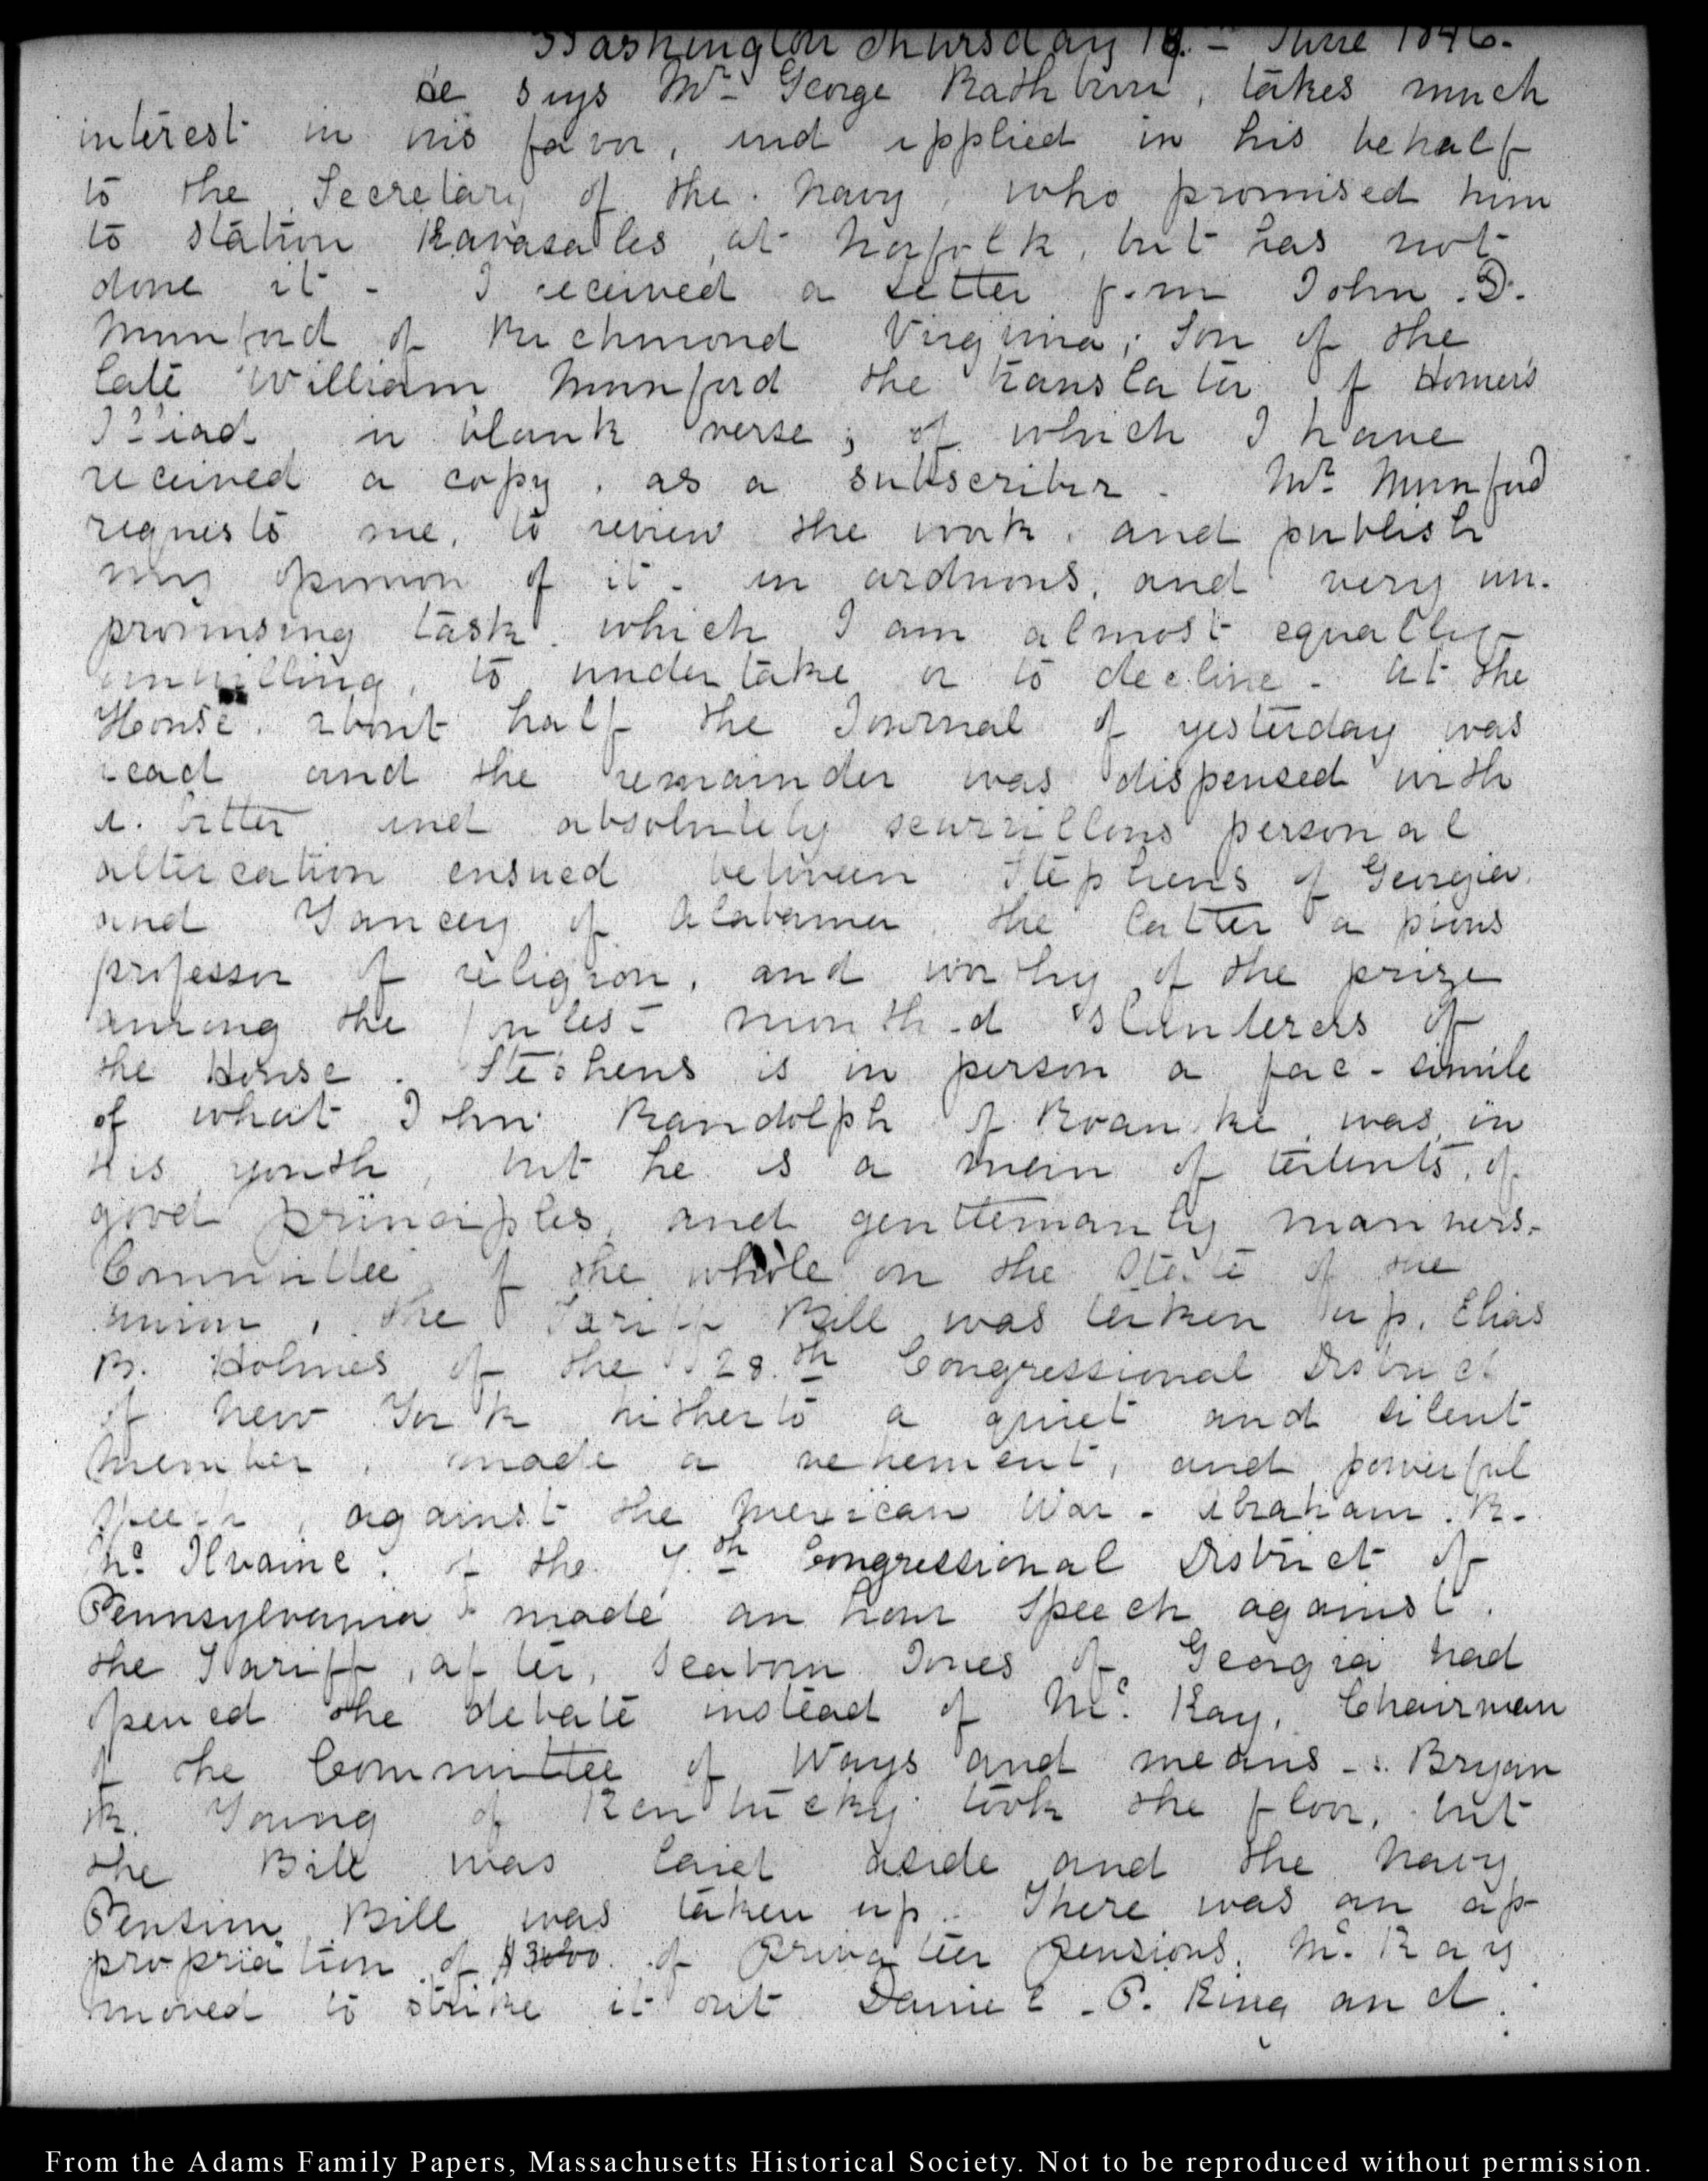 Washington Thursday 18.th June 1846.
He says Mr. George Rathbun, takes much
interest in his favor, and applied in his behalf
to the Secretary of the Navy, who promised him
to station Ravasales at Norfolk, but has not
done it - I received a letter from John. D.
Munford of Richmond Virginia, Son of the
late William Munford the translator of Homer's
Iliad in blank verse; of which I have
received a copy, as a subscriber. Mr. Munford
requests me, to review the work, and publish
my opinion of it - an arduous, and very un-
promising task which I am almost equally
unwilling, to undertake or to decline - At the
House, about half the Journal of yesterday was
read and the remainder was dispensed with
a bitter and absolutely scurrillous personal
altercation ensued between Stephens of Georgia
and Yancey of Alabama, the latter a pious
professor of religion, and worthy of the prize
among the foulest mouthed slanderers of
the House. Stephens is in person a fac-simile
of what John Randolph of Roanoke, was, in
his youth, but he is a man of talents, of
good principles, and gentlemanly manners-
Committee of the whole on the state of the
union, the Tariff Bill was taken up. Elias
B. Holmes of the 28.th Congressional District
of New York hitherto a quiet and silent
member, made a vehement, and powerful
speech, against the Mexican War - Abraham. R.
Mc. Ilvaine. of the 7.th Congressional District of
Pennsylvania made an hour speech against.
the Tariff, after, Seaborn Jones of Georgia had
opened the debate instead of Mc. Kay, Chairman
of the Committee of Ways and means - Bryan
R. Young of Kentucky took the floor, but
the Bill was laid aside and the Navy
Pension Bill was taken up. There was an ap-
propriation of $3000. of Privateer pensions. Mc. Kay
moved to strike it out Daniel - P. King and.
From the Adams Family Papers, Massachusetts Historical Society. Not to be reproduced without permission.